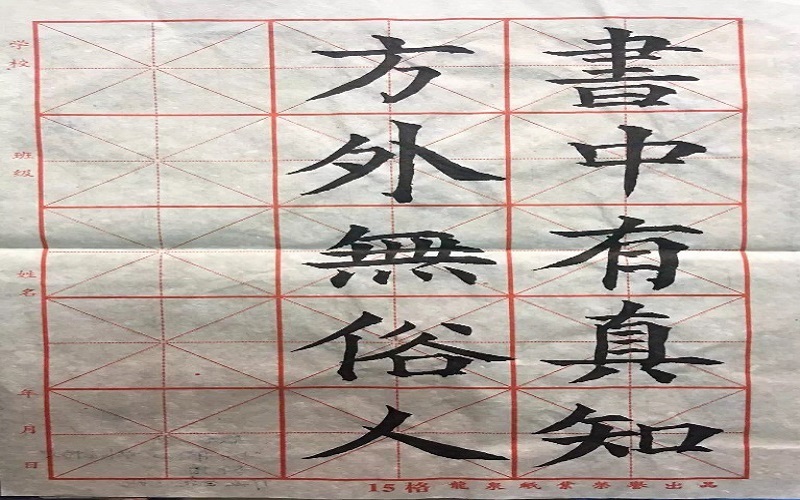 書中有真知
方外無俗人
學校
班級
姓名
年月日
15格 龍泉紙業榮譽出品